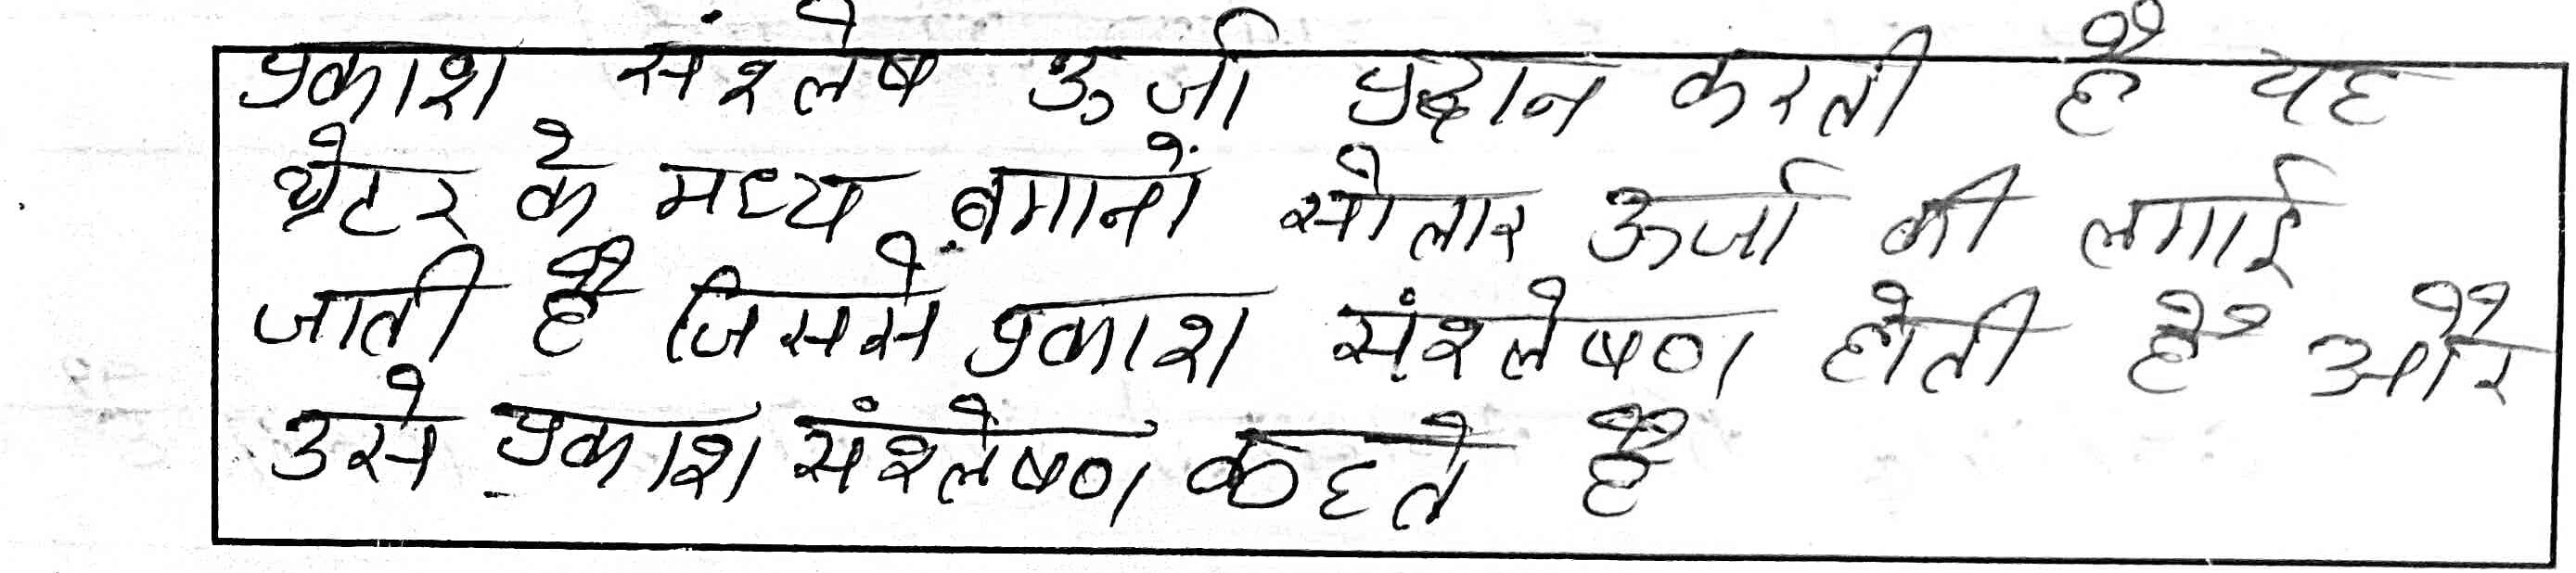 प्रकाश संश्लेष ऊर्जा प्रद्धान करती है यह
थेटर के मध्य बगानों सोलार ऊर्जा की लगाई
जाती है जिससे प्रकाश संश्लेषण होती है और
उसे प्रकाश संश्लेषण कहते है